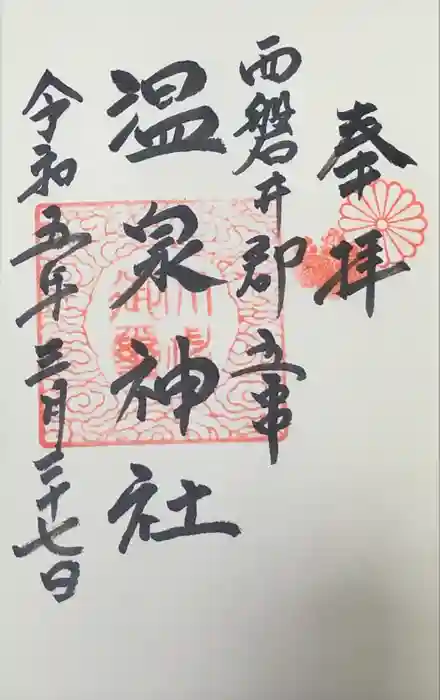 奉拝
西磐井郡五串
温泉神社
令和五年三月二十七日